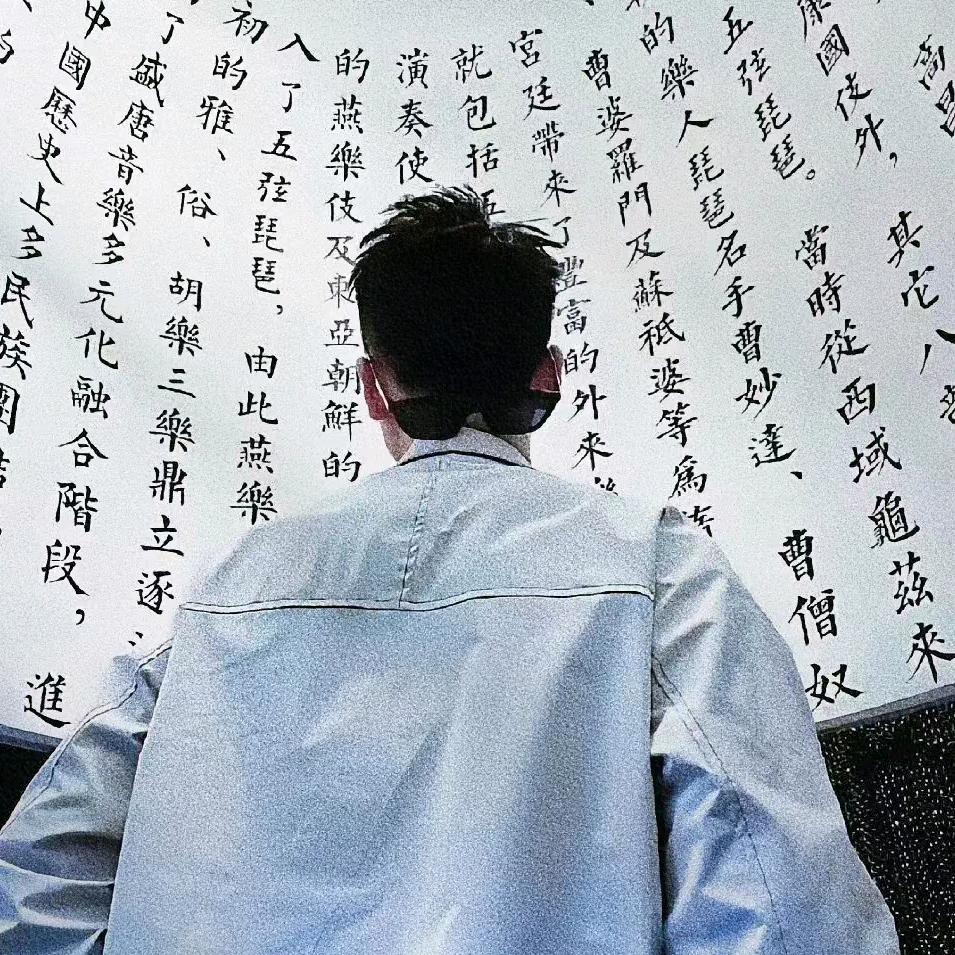 高昌
康國伎外，其它八
五弦琵琶。當時從西域龜茲來
的樂人琵琶名手曹妙達、曹僧奴
曹婆羅門及蘇祗婆等爲
宮廷帶來了豐富的外來
就包括五
演奏使
的燕樂伎及東亞朝鮮的
入了五弦琵琶，由此燕樂
初的雅、俗、胡樂三樂鼎立逐
了盛唐音樂多元化融合階段，進
中國歷史上多民族團